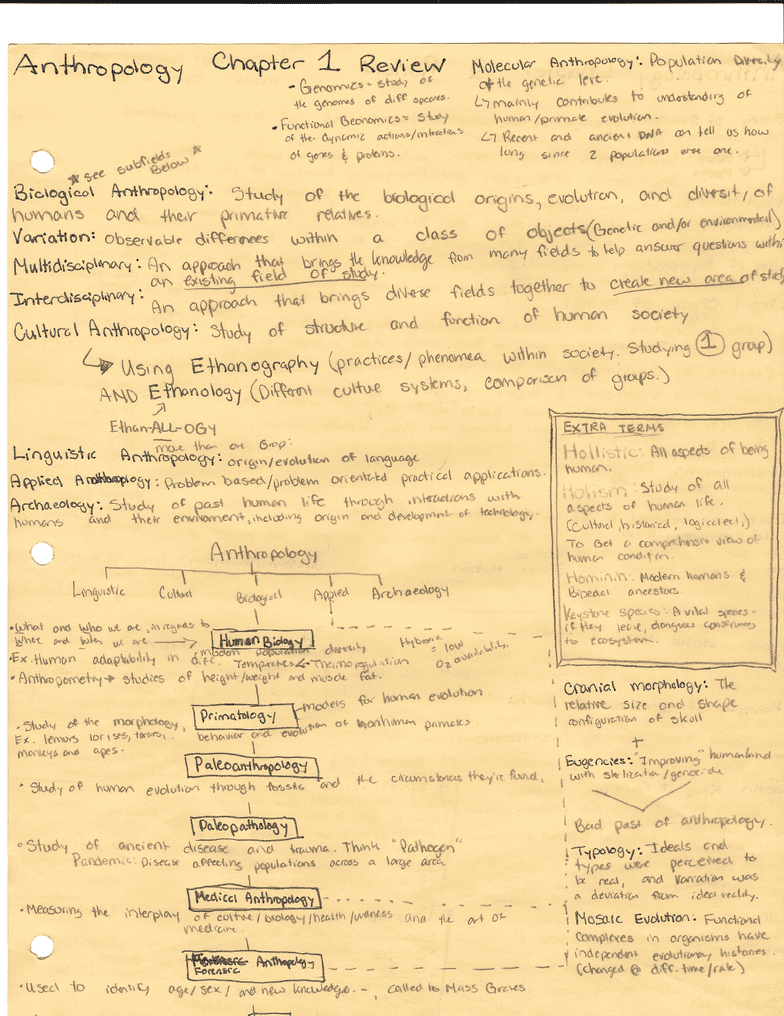 Anthropology Chapter 1 Review
• Genomics = study of
the genomes of diff species.
• Functional Geonomics = Study
of the dynamic actions/interactions
of genes & proteins.
Molecular Anthropology: Population Diversity
of the genetic level.
↳ mainly contributes to understanding of
human/primate evolution.
↳ Recent and ancient DNA can tell us how
long since 2 populations were one.
* see subfields
Below *
Biological Anthropology: Study of the biological origins, evolution, and diversity of
humans and their primative relatives.
Variation: observable differences within a class of objects (Genetic and/or environmental)
Multidisciplinary: An approach that brings the knowledge from many fields to help answer questions within
an existing field of study.
Interdisciplinary: An approach that brings diverse fields together to create new area of study
Cultural Anthropology: Study of structure and function of human society
↳ Using Ethanography (practices/phenomea within society. Studying 1 group)
AND Ethanology (Different culture systems, comparison of groups.)
Ethan-ALL-OGY
more than one Group.
Linguistic Anthropology: origin/evolution of language
Applied Anthropology: Problem based/problem orientated practical applications.
Archaeology: Study of past human life through interactions with
humans and their enviroment, including origin and development of technology.
EXTRA TERMS
Hollistic: All aspects of being
human.
Holism: Study of all
aspects of human life.
(cultural, historical,
To Get a comprehensive view of
human condition.
Hominin: Modern humans &
Bipedal ancestors.
Keystone species: A vital species-
if they leave, dangerous
to ecosystem.
Anthropology
Linguistic Cultural Biological Applied Archaeology
• What and Who we are, in regards to
Where and when we are →
Human Biology
modern population diversity
• Ex. Human adaptability in diff. Tempratures ← Thermoregulation
Hypoxia
= low
O2 availability.
• Anthropometry → studies of height/weight and muscle fat.
Primatology
models for human evolution
• Study of the morphology, behavior and evolution of nonhuman primates
Ex. lemurs lorises, tarsies,
monkeys and apes.
Paleoanthropology
• Study of human evolution through fossils and the circumstances they're found.
Paleopathology
• Study of ancient disease and trauma. Think "Pathogen"
Pandemic: Disease affecting populations across a large area
Medical Anthropology
• Measuring the interplay of culture/biology/health/illness and the art of
medicine
Forensic Anthropology
• Used to identify age/sex/ and new knowledge -, called to Mass Graves
Cranial morphology: The
relative size and shape
configuration of skull
+
Eugencies: "Improving" humankind
with sterlization/genocide
Bad past of anthropology.
Typology: Ideals and
types were perceived to
be real, and variation was
a deviation from ideal reality.
Mosaic Evolution: Functional
complexes in organisms have
independent evolutionary histories.
(changed @ diff. time/rate)